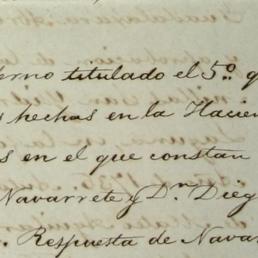 erno titulado el 5º. q
s hechas en la Hacien
s en el que constan
Navarrete y Dn Dieg
. Respuesta de Nava